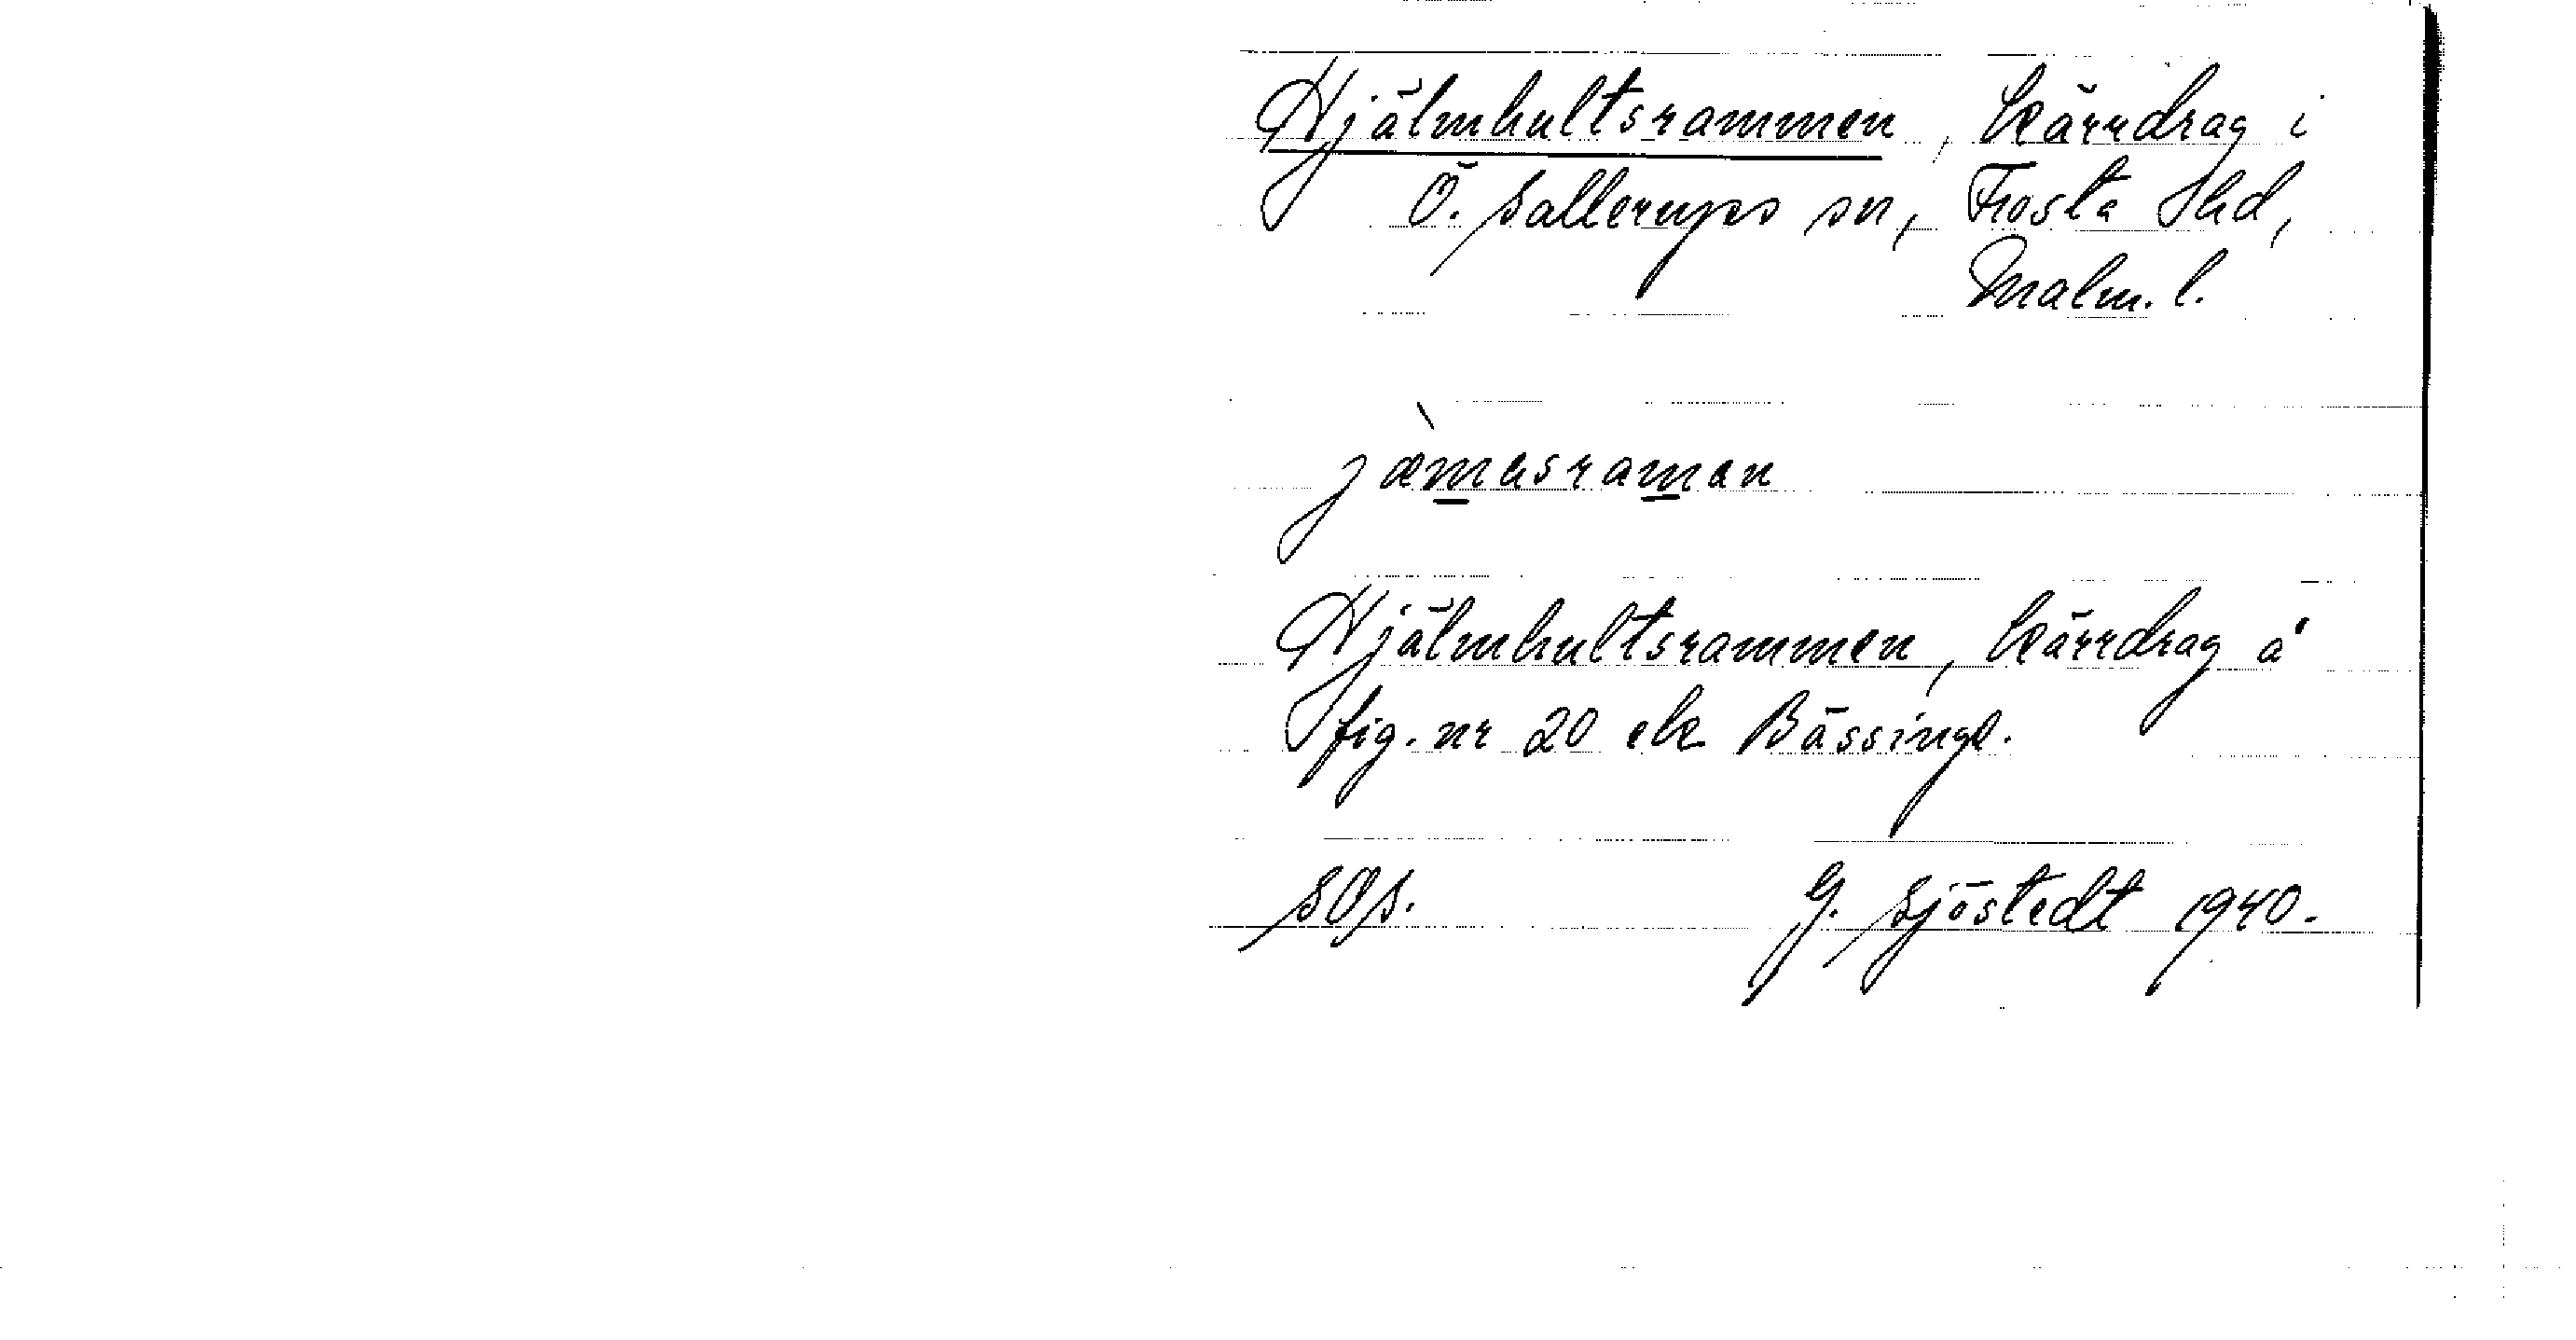 Hjälmhultsrammen, kärrdrag i
Ö. Sallerups sn, Frosta Hd,
Malm. l.
jæ̀masraman
Hjälmhultsrammen, kärrdrag å
fig. nr 20 ek Bässinge.
SOS. G. Sjöstedt 1940.